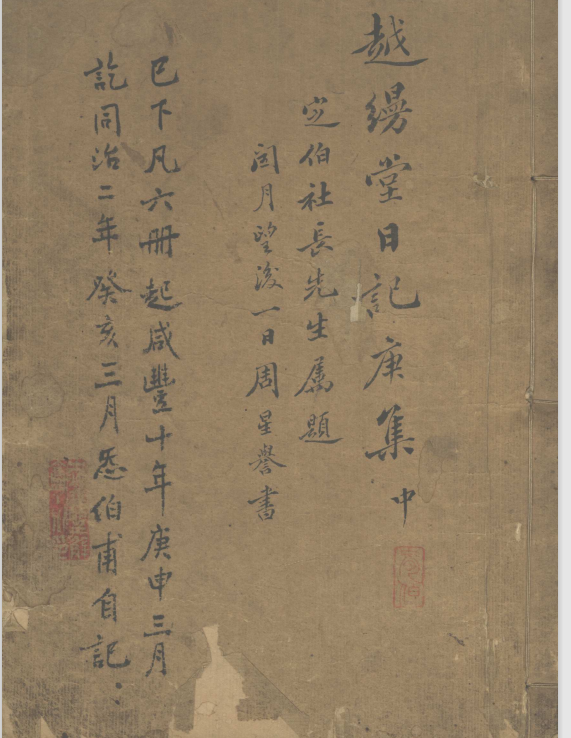 越縵堂日記庚集中
㤅伯社長先生属題
閏月望後一日周星譽書
已下凡六冊起咸豐十年庚申三月
訖同治二年癸亥三月㤅伯甫自記